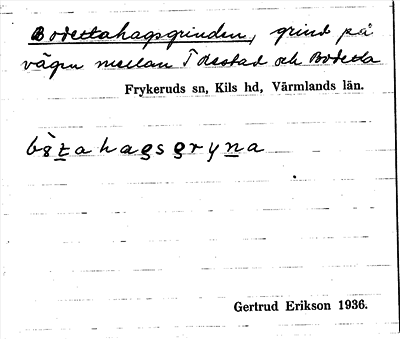 Bodettahagsgrinden, grind på
vägen mellan Tolestad och Bodetta
Frykeruds sn, Kils hd, Värmlands län.
Gertrud Erikson 1936.